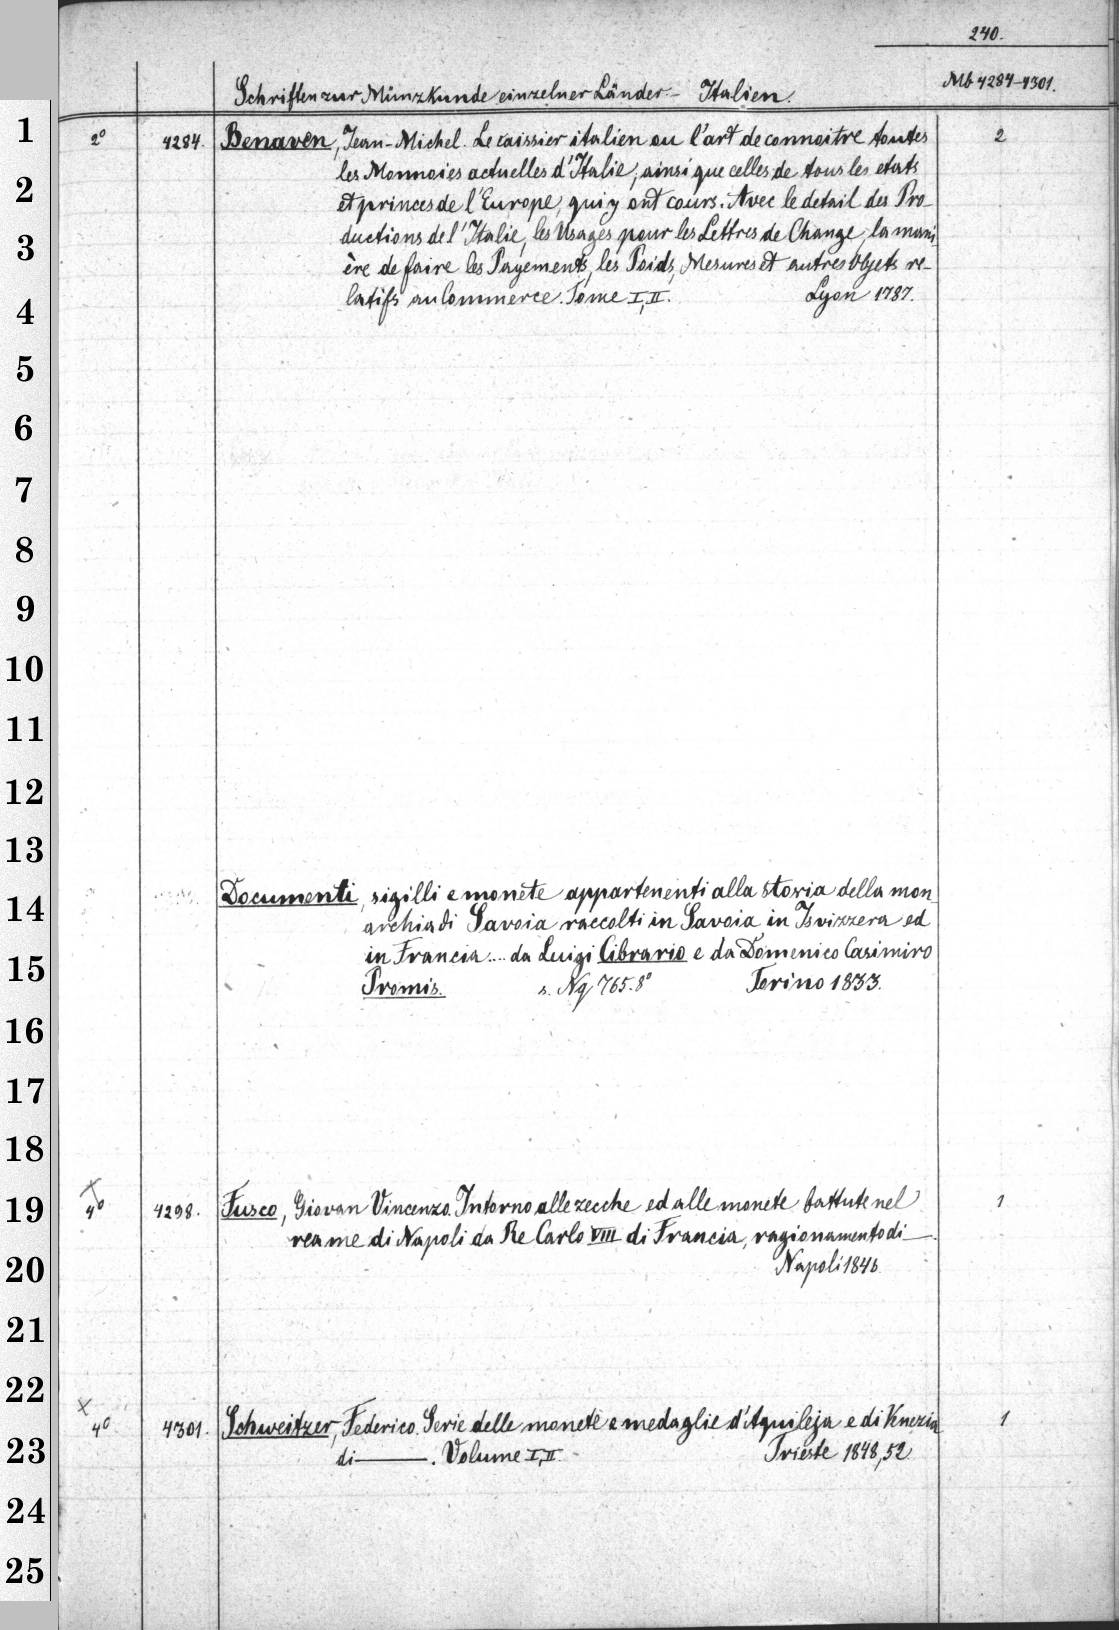 240.
Schriften zur Münzkunde einzelner Länder - Italien. Mb 4284-4301.
1
2° 4284. Benaven, Jean-Michel. Le caissier italien ou l'art de connoitre toutes 2
les Monnoies actuelles d'Italie, ainsi que celles de tous les etats
2
et princes de l'Europe, qui y ont cours. Avec le detail des Pro-
3
ductions de l'Italie, les Usages pour les Lettres de Change, la mani
ère de faire les Payements, les Poids, Mesures et autres objets re-
4
latifs au Commerce. Tome I, II. Lyon 1787.
5
6
7
8
9
10
11
12
13
14
Documenti, sigilli e monete appartenenti alla storia della mon
archia di Savoia raccolti in Savoia in Isvizzera ed
15
in Francia .... da Luigi Cibrario e da Domenico Casimiro
Promis. s. Ng 765. 8° Torino 1833.
16
17
18
19
4° 4298. Fusco, Giovan Vincenzo. Intorno alle zecche ed alle monete battute nel 1
reame di Napoli da Re Carlo VIII di Francia, ragionamento di —.
20
Napoli 1846
21
22
x
4° 4301. Schweitzer, Federico. Serie delle monete e medaglie d'Aquileja e di Venezia 1
23
di ——. Volume I, II. Trieste 1848, 52
24
25